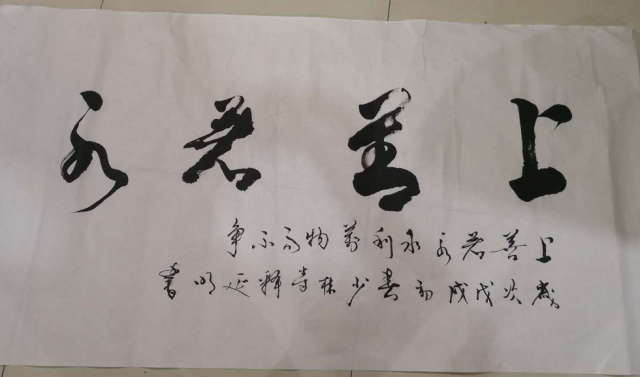 上善若水
上善若水水利萬物而不争
歲次戊戌初春少林寺释延明書